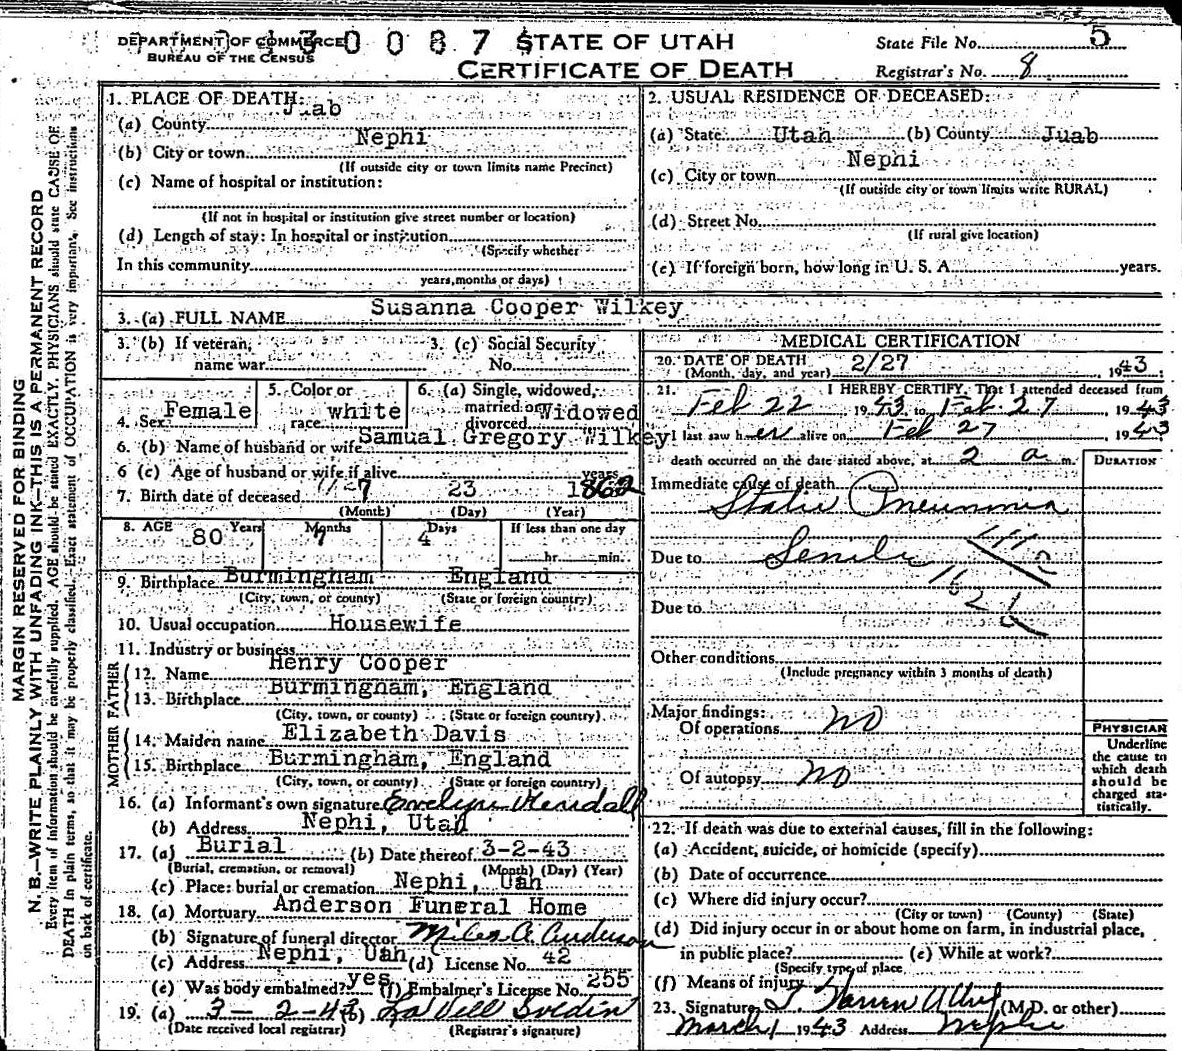 DEPARTMENT OF COMMERCE
BUREAU OF THE CENSUS
130087
STATE OF UTAH
CERTIFICATE OF DEATH
State File No. 5
Registrar's No. 8
MARGIN RESERVED FOR BINDING
N. B.—WRITE PLAINLY WITH UNFADING INK—THIS IS A PERMANENT RECORD
Every item of information should be carefully supplied. AGE should be stated EXACTLY. PHYSICIANS should state CAUSE OF
DEATH in plain terms, so that it may be properly classified. Exact statement of OCCUPATION is very important. See instructions
on back of certificate.
1. PLACE OF DEATH:
(a) County Juab
(b) City or town Nephi
(If outside city or town limits name Precinct)
(c) Name of hospital or institution:
(If not in hospital or institution give street number or location)
(d) Length of stay: In hospital or institution
(Specify whether
In this community
years, months or days)
2. USUAL RESIDENCE OF DECEASED:
(a) State Utah (b) County Juab
(c) City or town Nephi
(If outside city or town limits write RURAL)
(d) Street No.
(If rural give location)
(e) If foreign born, how long in U. S. A. years.
3. (a) FULL NAME Susanna Cooper Wilkey
3. (b) If veteran,
name war
3. (c) Social Security
No.
4. Sex Female
5. Color or
race white
6. (a) Single, widowed,
married or
divorced Widowed
6. (b) Name of husband or wife Samual Gregory Wilkey
6 (c) Age of husband or wife if alive years
7. Birth date of deceased 7 23 1862
(Month) (Day) (Year)
8. AGE Years Months Days If less than one day
80 7 4 hr. min.
9. Birthplace Burmingham England
(City, town, or county) (State or foreign country)
10. Usual occupation Housewife
11. Industry or business
FATHER
12. Name Henry Cooper
13. Birthplace Burmingham, England
(City, town, or county) (State or foreign country)
MOTHER
14. Maiden name Elizabeth Davis
15. Birthplace Burmingham, England
(City, town, or county) (State or foreign country)
16. (a) Informant's own signature Evelyn Kendall
(b) Address Nephi, Utah
17. (a) Burial (b) Date thereof 3-2-43
(Burial, cremation, or removal) (Month) (Day) (Year)
(c) Place: burial or cremation Nephi, Uah
18. (a) Mortuary Anderson Funeral Home
(b) Signature of funeral director Miles A. Anderson
(c) Address Nephi, Uah (d) License No. 42
(e) Was body embalmed? yes (f) Embalmer's License No. 255
19. (a) 3-2-43
(Date received local registrar) (Registrar's signature)
MEDICAL CERTIFICATION
20. DATE OF DEATH 2/27 1943
(Month, day, and year)
21. I HEREBY CERTIFY, That I attended deceased from
Feb 22 1943 to Feb. 27, 1943
I last saw her alive on Feb 27, 1943
death occurred on the date stated above, at 2 a m.
DURATION
Immediate cause of death
Static Pneumonia
Due to Senile
Due to
Other conditions
(Include pregnancy within 3 months of death)
Major findings:
Of operations no
Of autopsy no
PHYSICIAN
Underline
the cause to
which death
should be
charged sta-
tistically.
22. If death was due to external causes, fill in the following:
(a) Accident, suicide, or homicide (specify)
(b) Date of occurrence
(c) Where did injury occur?
(City or town) (County) (State)
(d) Did injury occur in or about home on farm, in industrial place,
in public place? (e) While at work?
(Specify type of place
(f) Means of injury
23. Signature (M.D. or other)
March 1 1943 Address Nephi